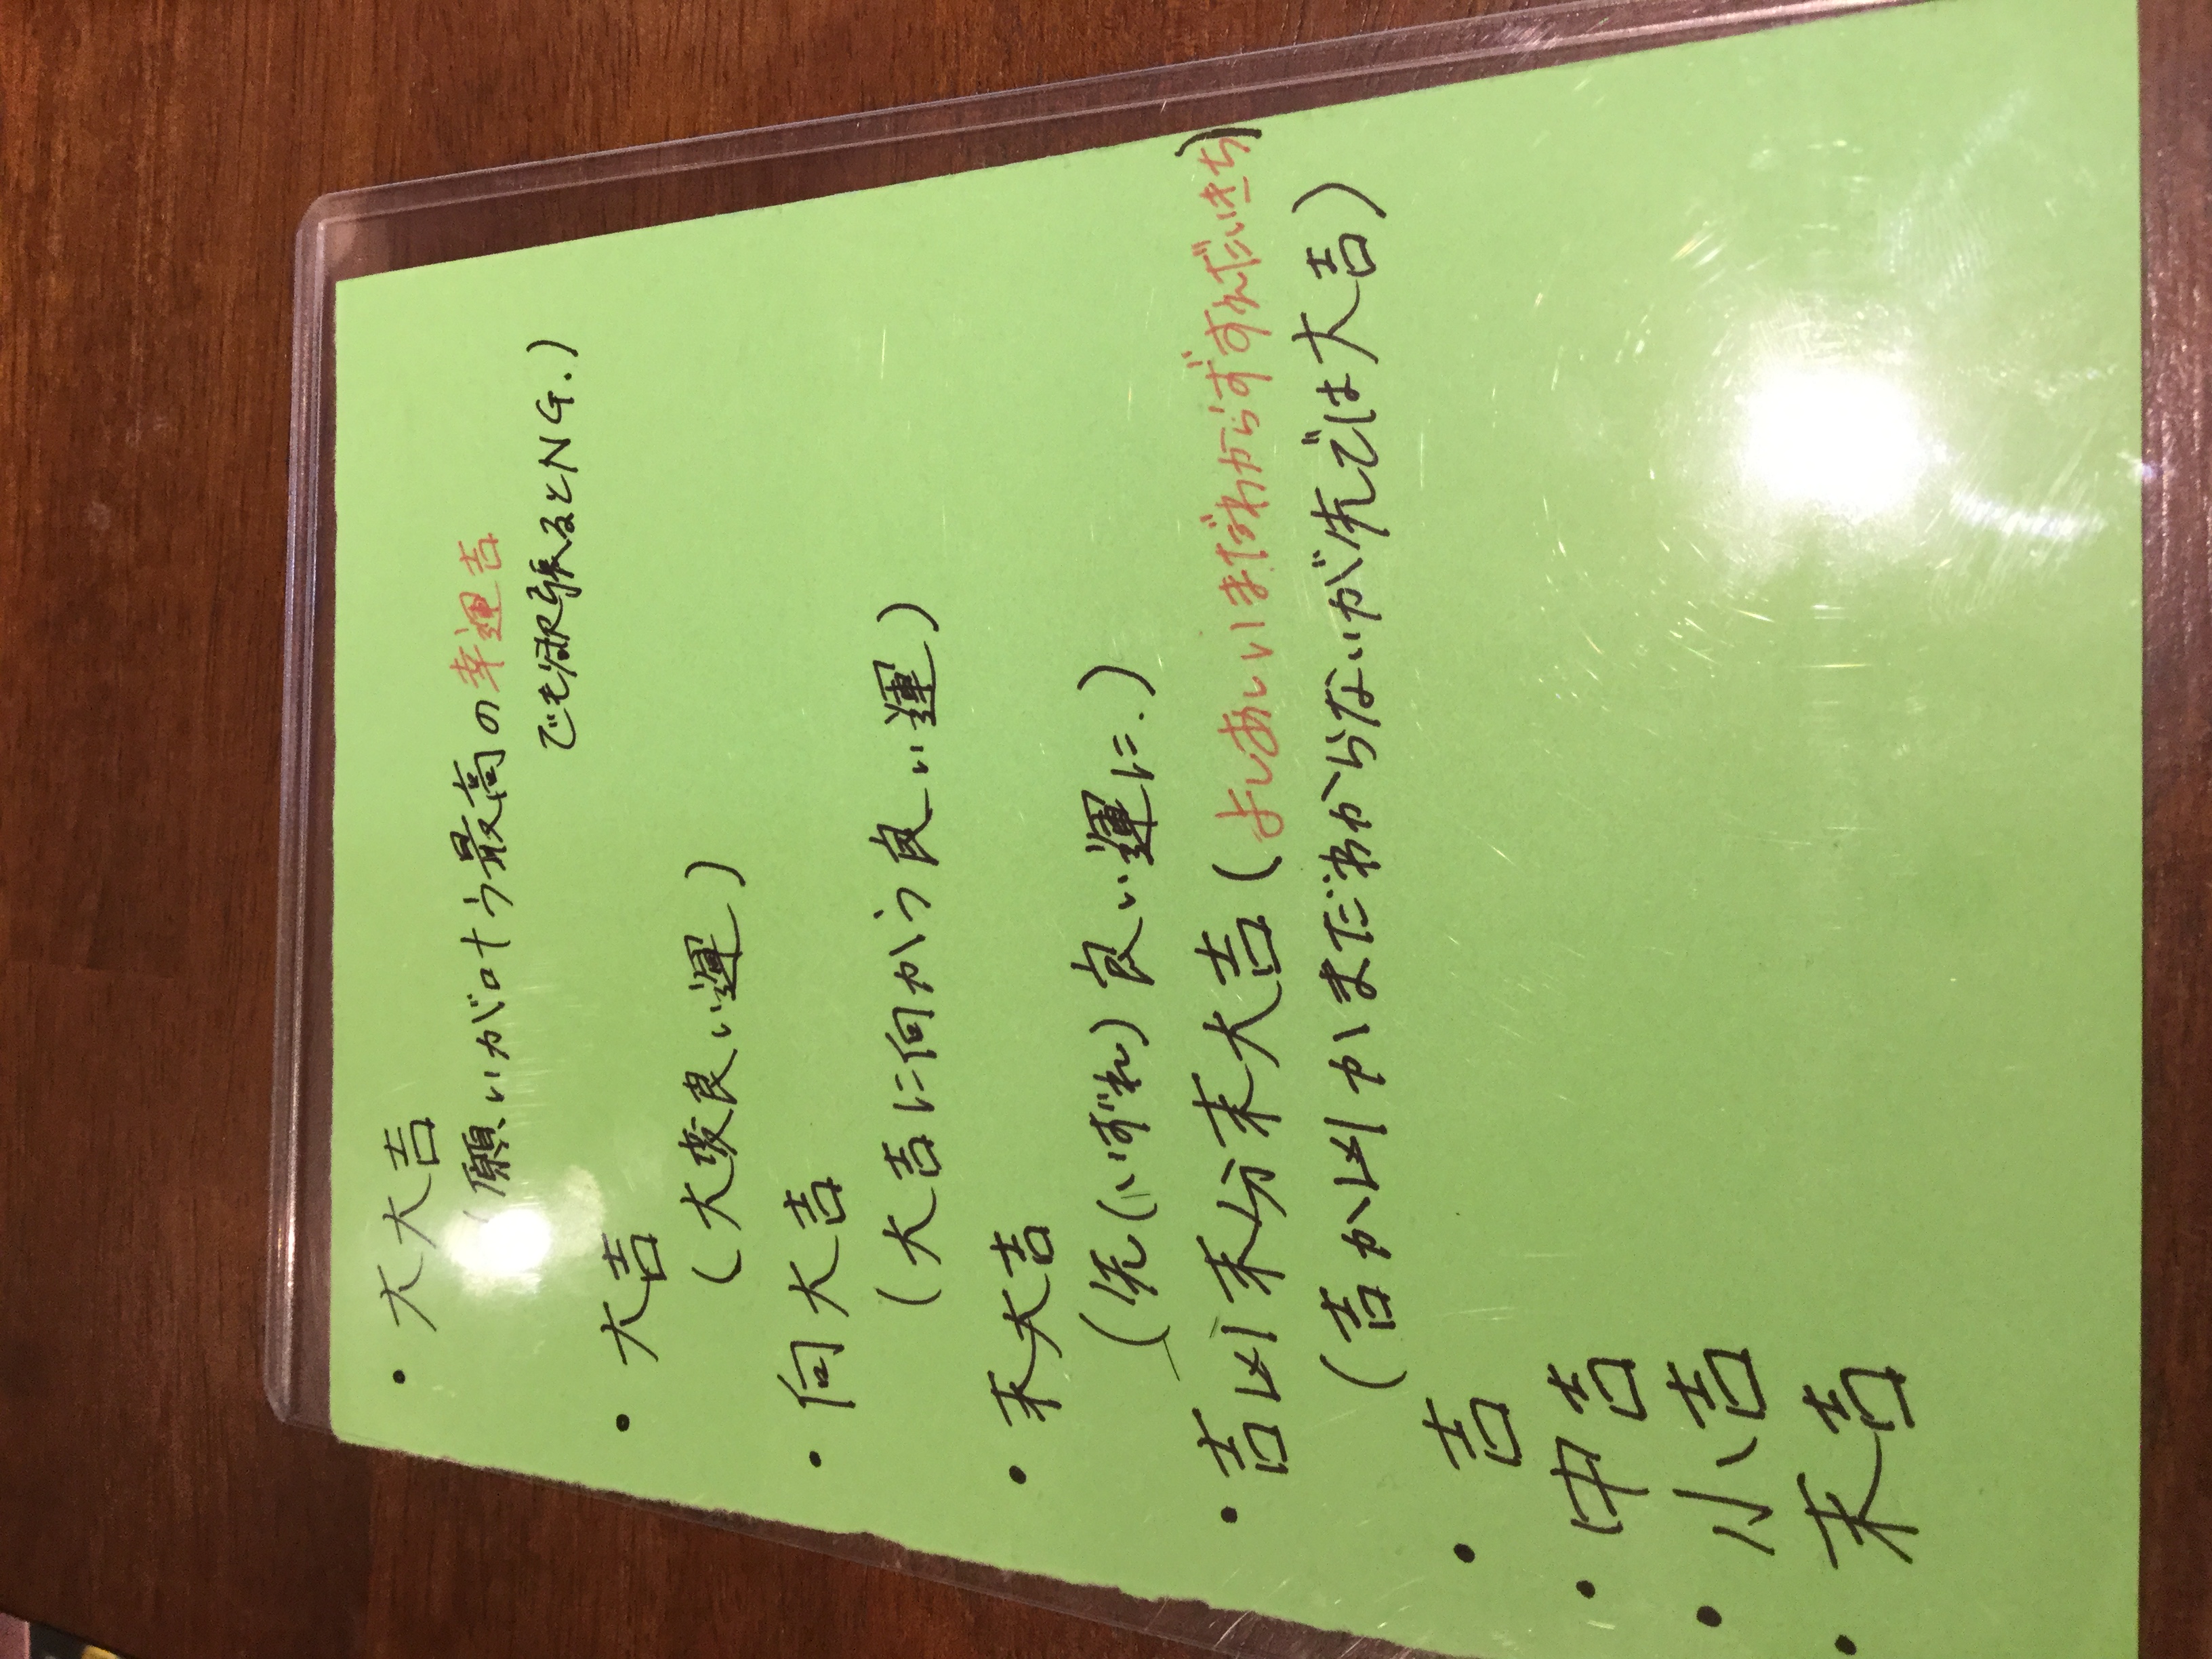 ・大大吉
(願いが叶う最高の幸運吉
でも欲張るとNG.)
・大吉
(大変良い運)
・向大吉
(大吉に向かう良い運)
・末大吉
(先(いずれ)良い運に.)
・吉凶未分末大吉(よしあしいまだわからずすえだいきち)
(吉か凶かまだわからないが先では大吉)
・吉
・中吉
・小吉
・末吉